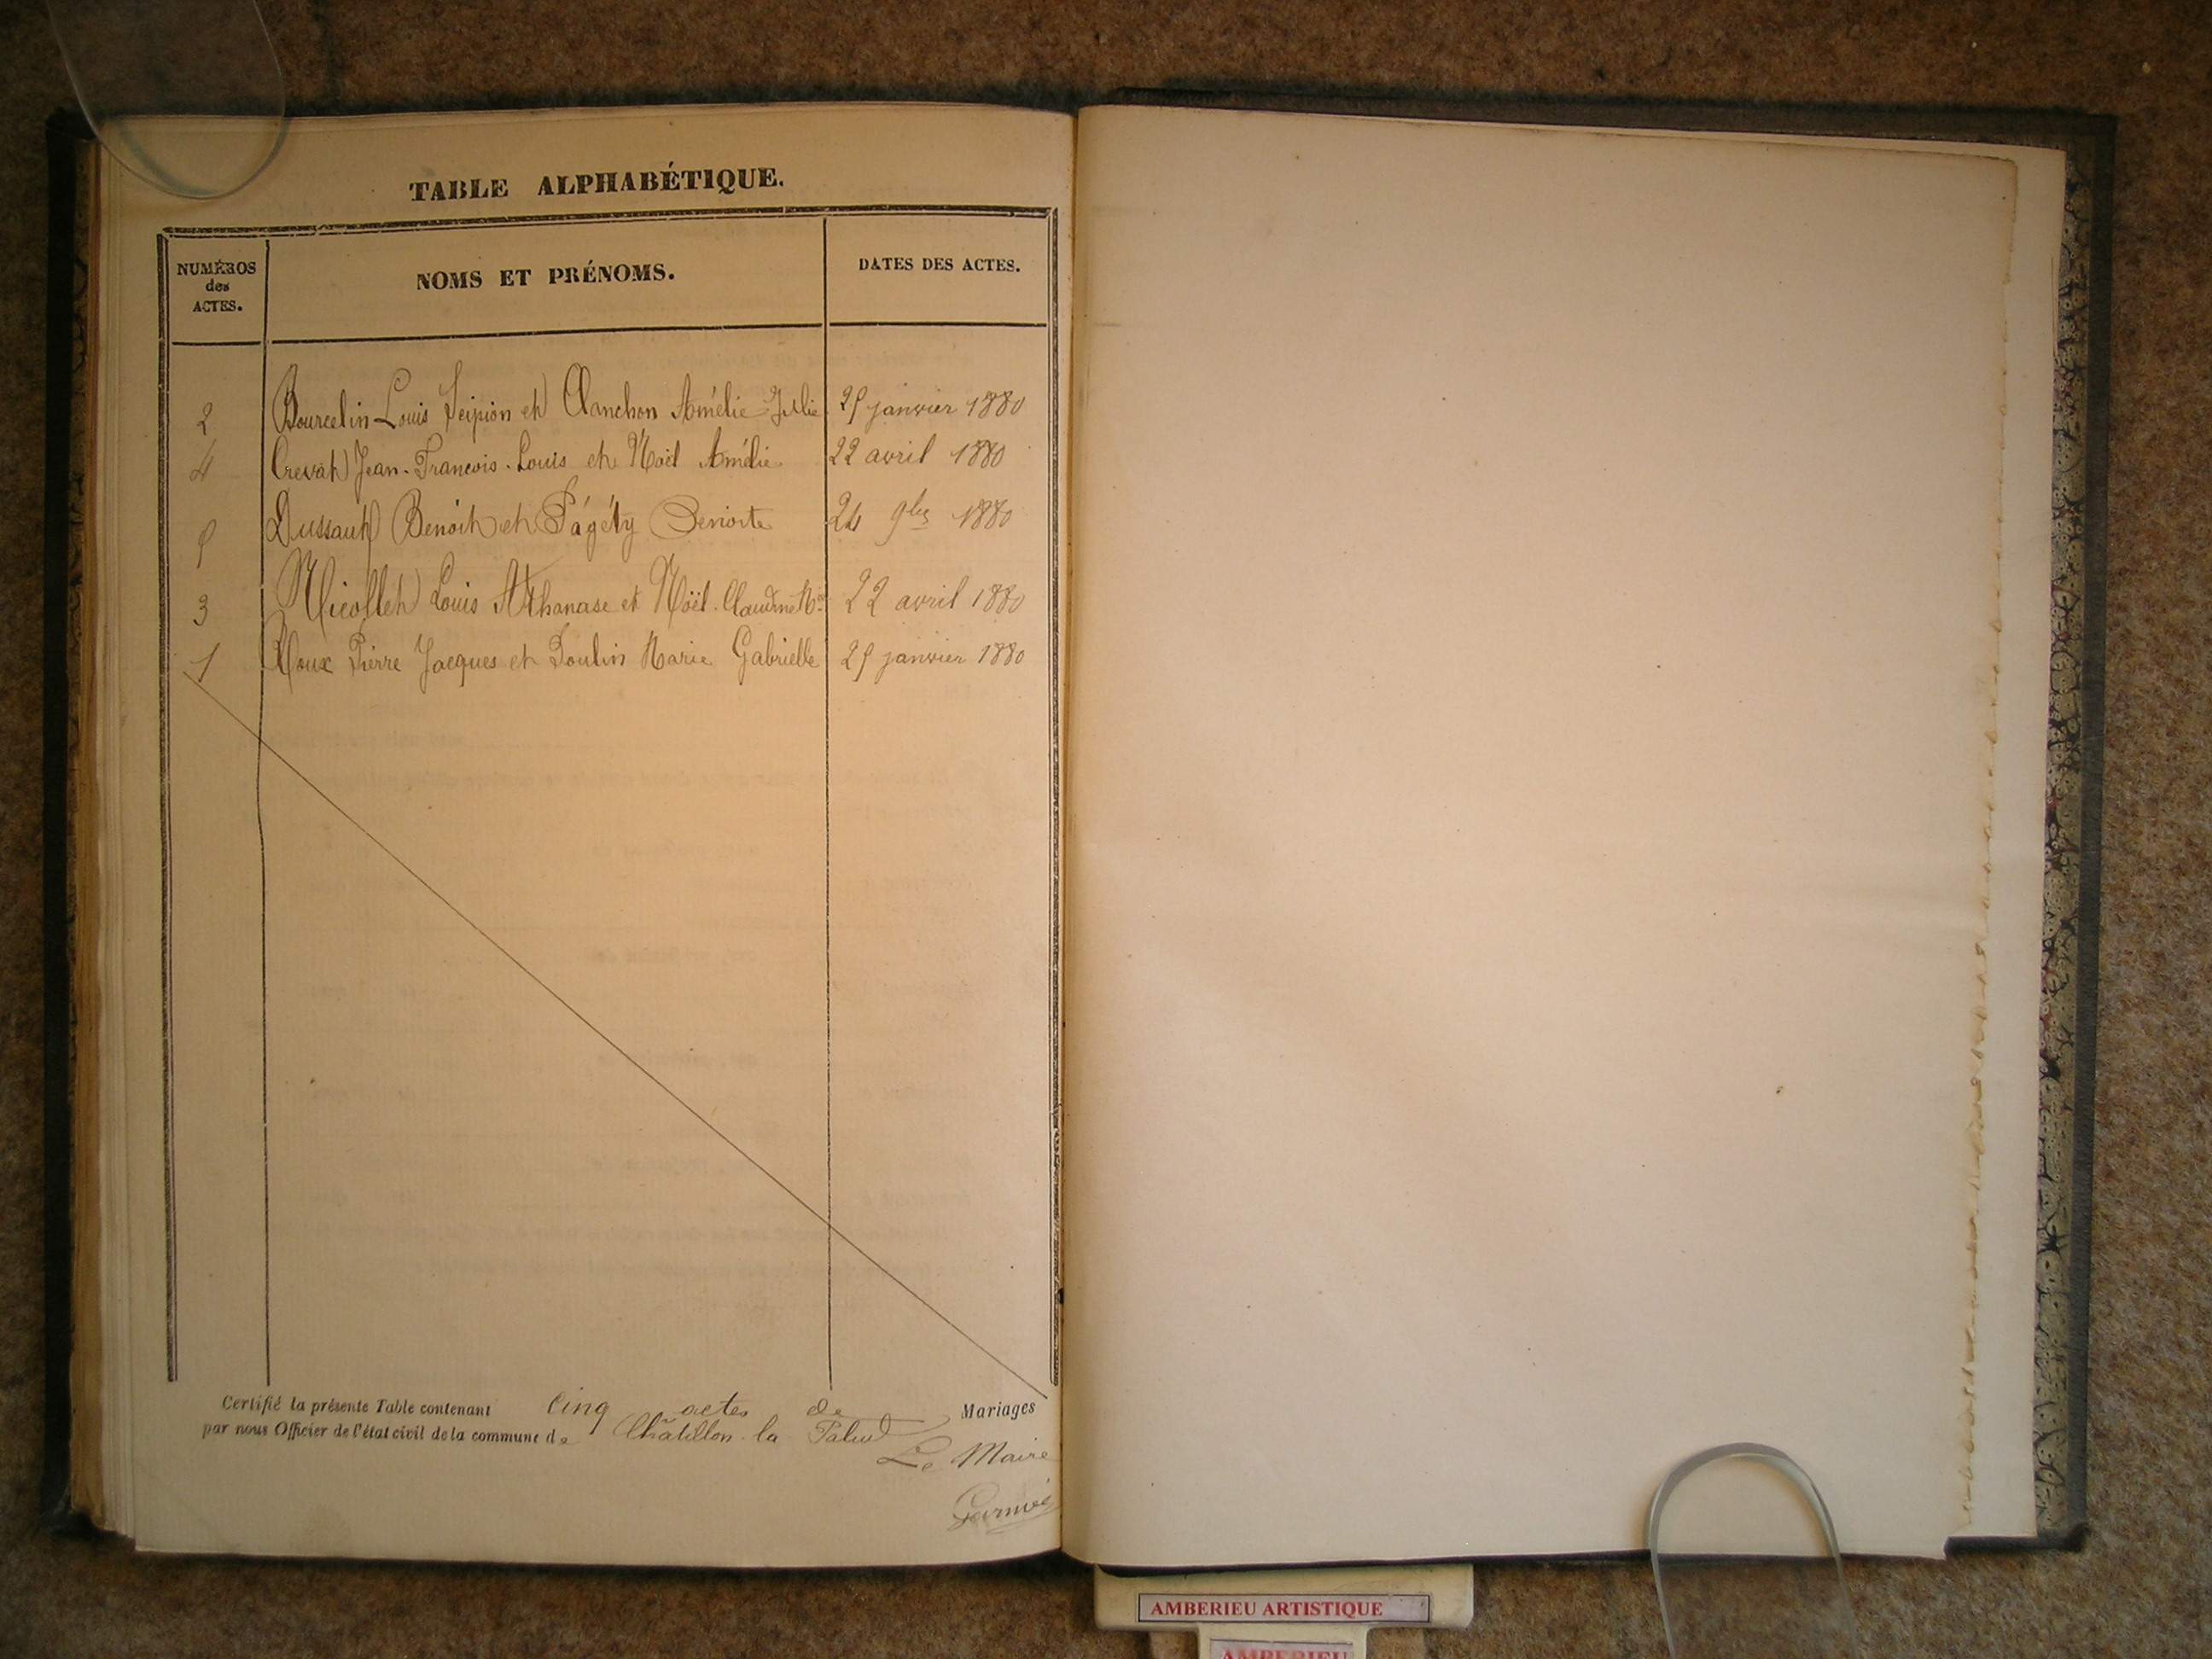 TABLE ALPHABÉTIQUE.
NUMÉROS
des
ACTES.
NOMS ET PRÉNOMS.
DATES DES ACTES.
2 Bourcelin Louis Scipion et Clanchon Amélie Julie 25 janvier 1880
4 Crevat Jean-François-Louis et Noël Amélie 22 avril 1880
5 Dussaut Benoit et Benoite 24 9bre 1880
3 Nicollet Louis Athanase et Noël Claudine 22 avril 1880
1 Roux Pierre Jacques et Poulin Marie Gabrielle 25 janvier 1880
Certifié la présente Table contenant Cinq actes de Mariages
par nous Officier de l'état civil de la commune de Châtillon la Palud
Le Maire
AMBERIEU ARTISTIQUE
AMBERIEU